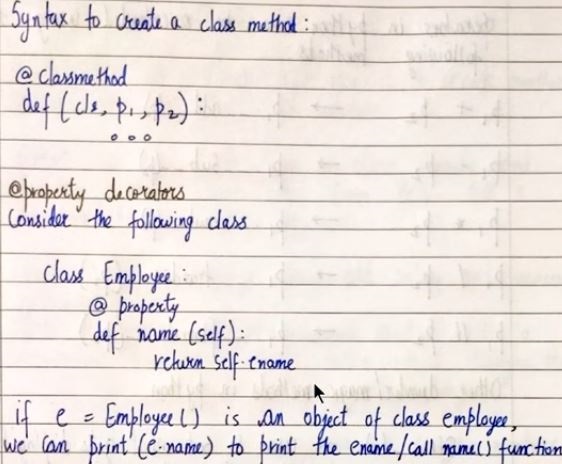 Syntax to create a class method :
@ classmethod
def (cls, p1, p2) :
ooo
@property decorators
Consider the following class
Class Employee :
@ property
def name (self) :
return self.ename
if e = Employee() is an object of class employee,
we can print (e.name) to print the ename/call name() function